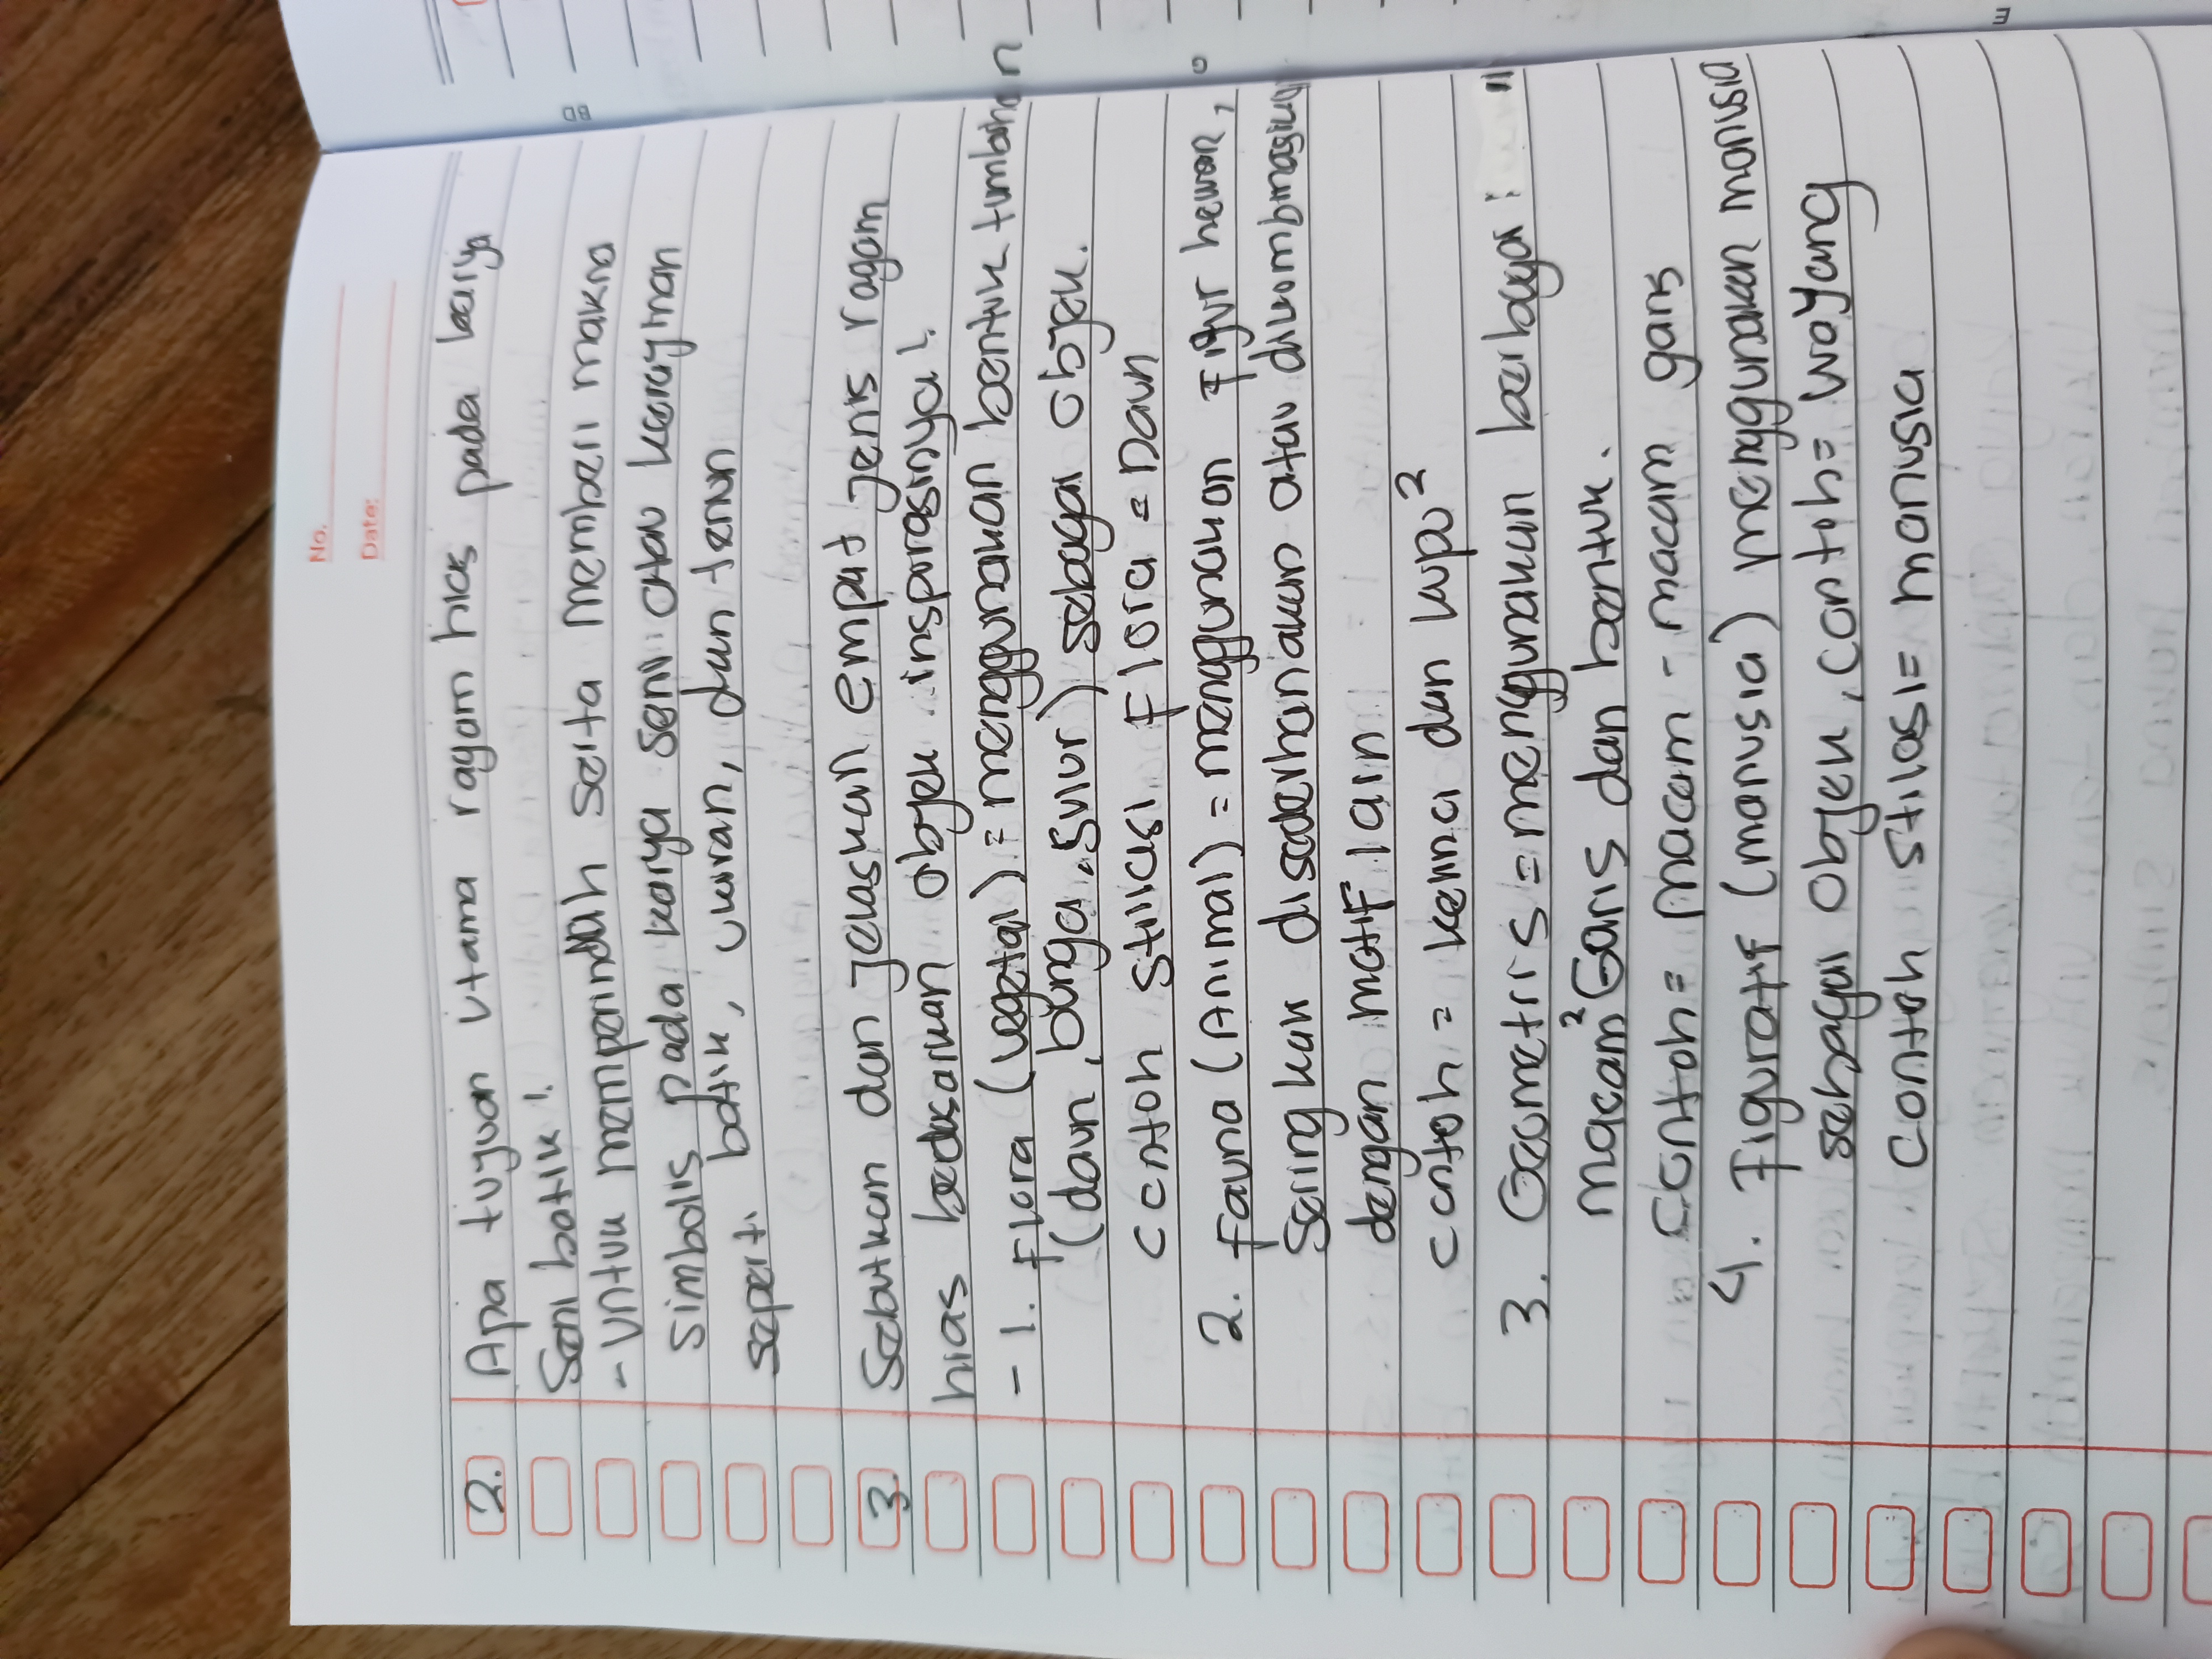 No.
Date:
2. Apa tujuan utama ragam hias pada karya
Seni batik !
- Untuk memperindah serta memberi makna
simbolis pada karya seni atau kerajinan
seperti batik, ukiran, dan tenun
3. Sebutkan dan jelaskan empat jenis ragam
hias berdasarkan objek insporasinya !
- 1. Flora (vegetal) = menggunakan bentuk tumbuhan
(daun, bunga, sulur) sebagai objek.
contoh stilicisi Flora = Daun
2. Fauna (Animal) = menggunakan figur hewan,
Sering kali disederhanakan atau dikombinasikan
dengan motif lain
contoh = kelinci dan kupu²
3. Geometris = menggunakan berbagai : "
macam² Garis dan bentuk.
Contoh = Macam - macam garis
4. Figuratif (manusia) menggunakan manusia
sebagai objek, contoh = wayang
contoh stilasi = manusia